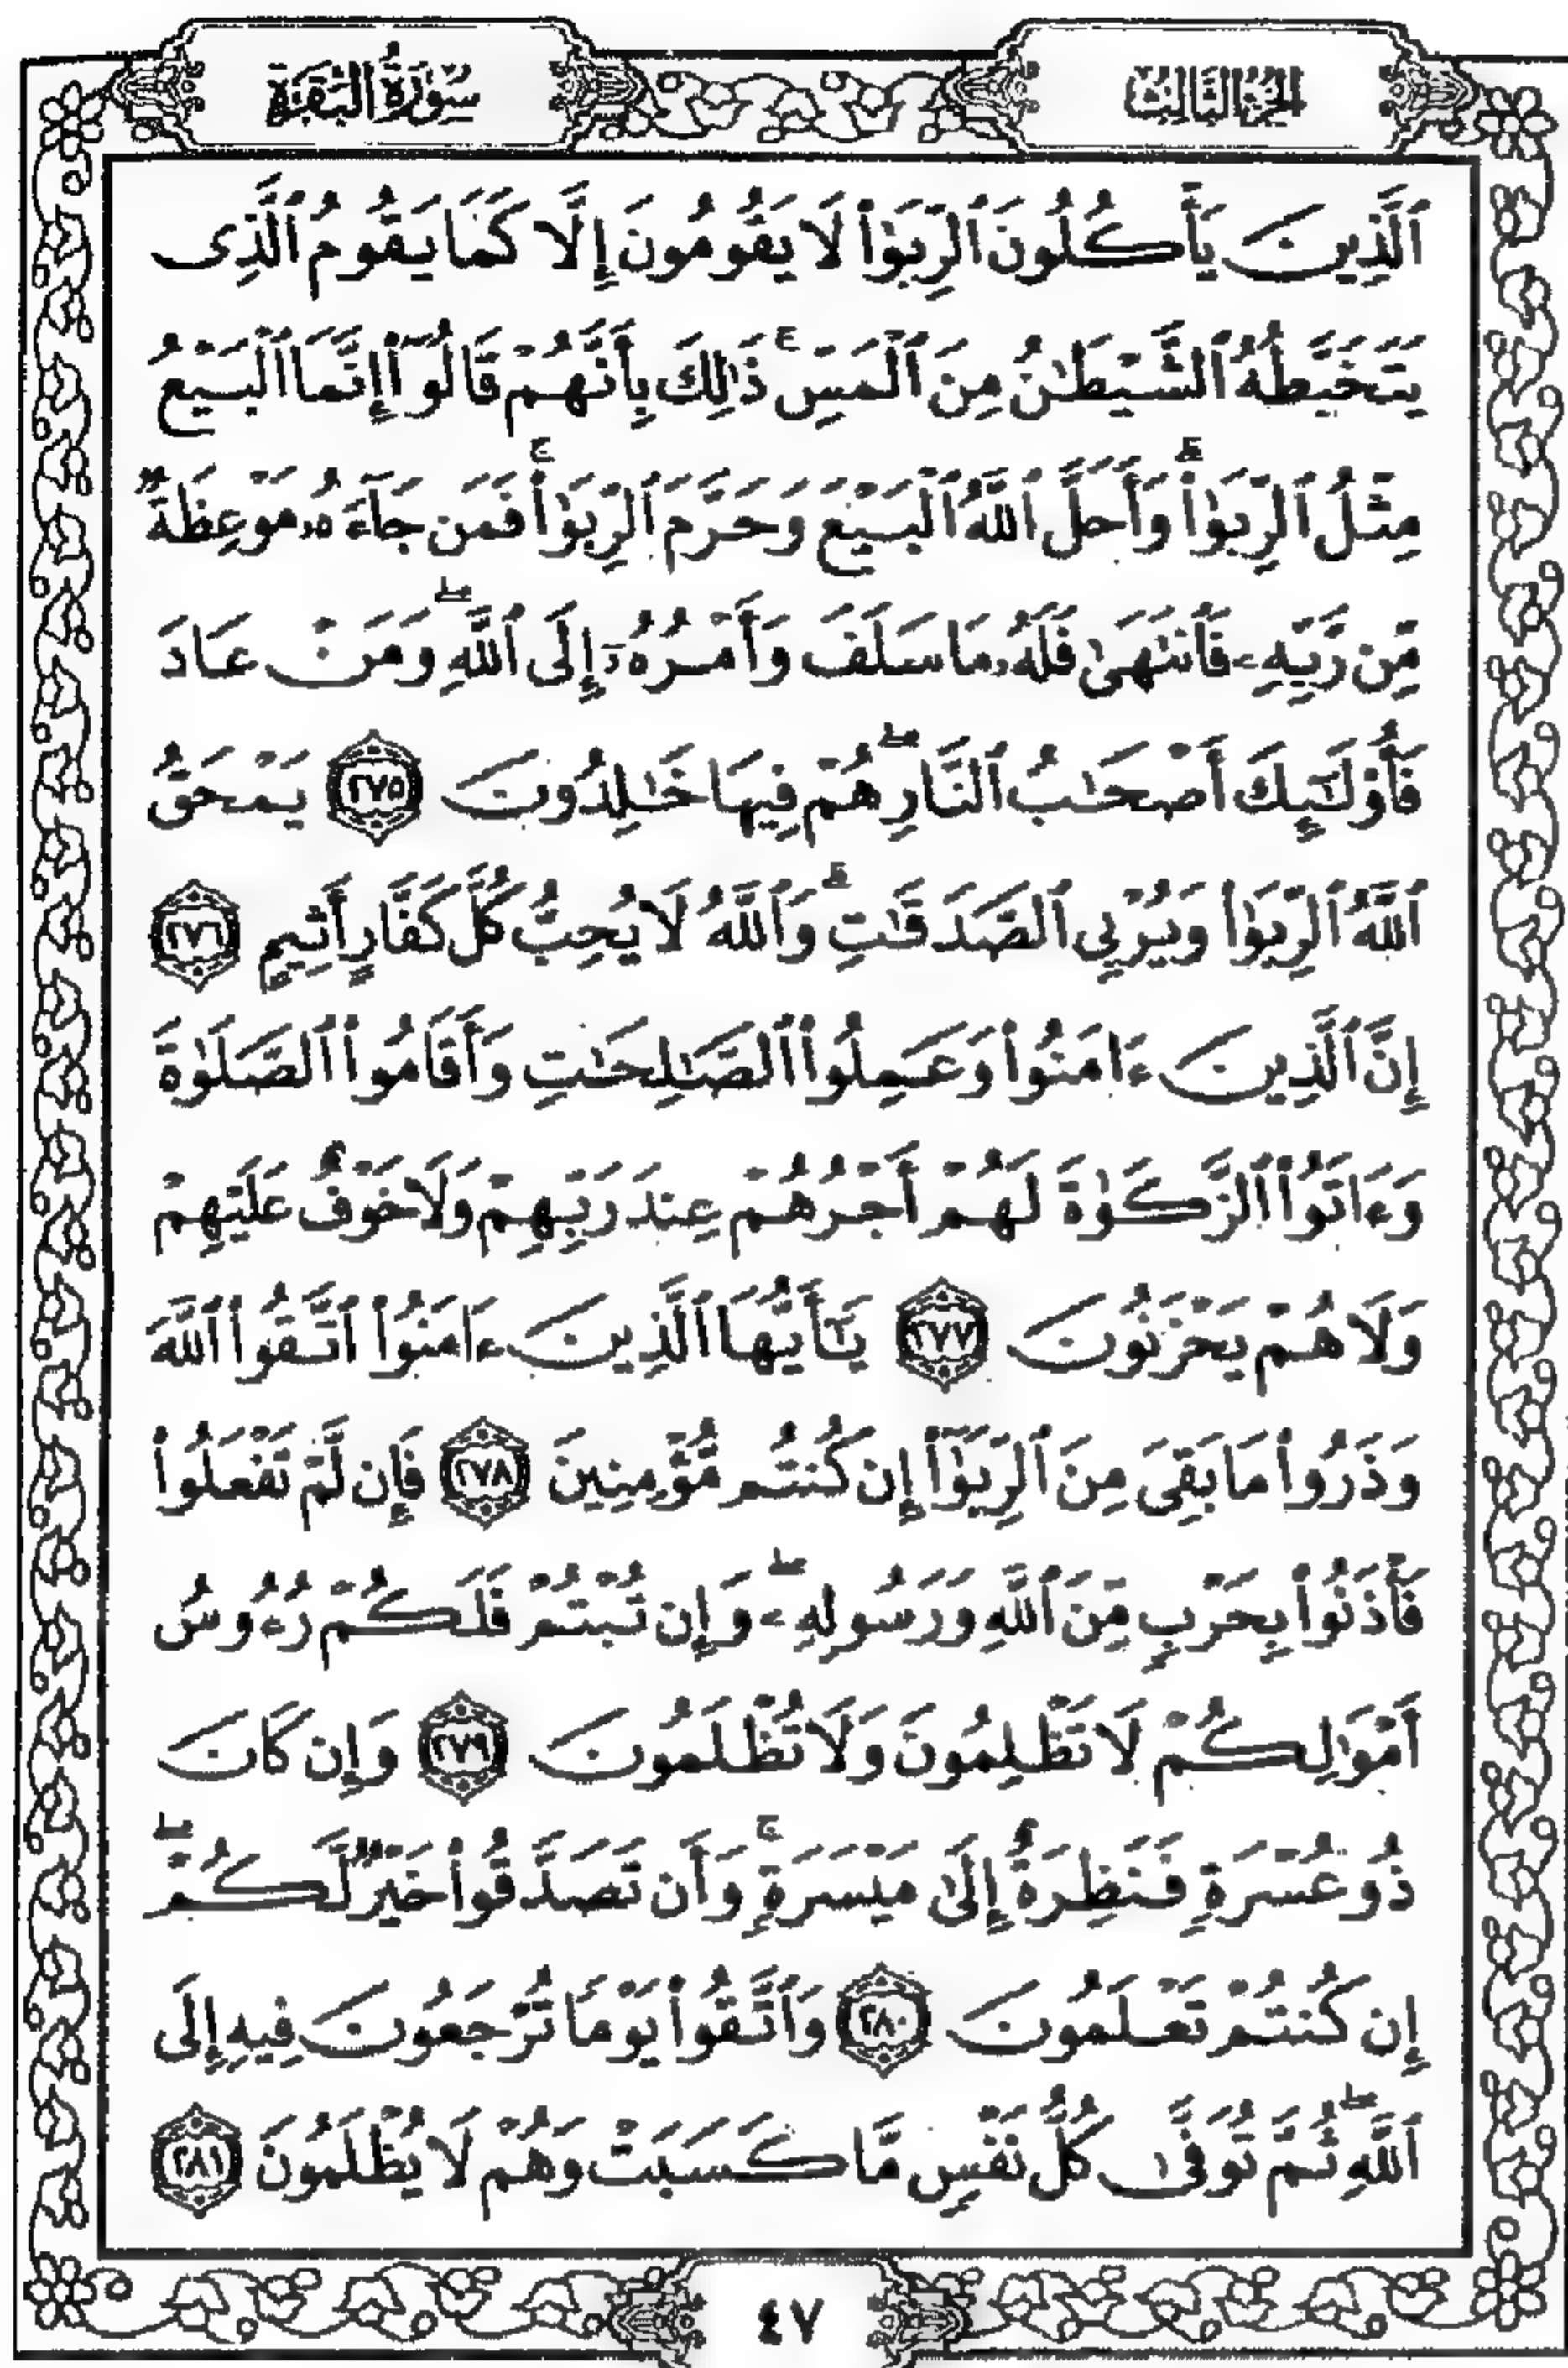 الجزء الثالث
سورة البقرة
ٱلَّذِينَ يَأْكُلُونَ ٱلرِّبَوٰا۟ لَا يَقُومُونَ إِلَّا كَمَا يَقُومُ ٱلَّذِى
يَتَخَبَّطُهُ ٱلشَّيْطَـٰنُ مِنَ ٱلْمَسِّ ۚ ذَٰلِكَ بِأَنَّهُمْ قَالُوٓا۟ إِنَّمَا ٱلْبَيْعُ
مِثْلُ ٱلرِّبَوٰا۟ ۗ وَأَحَلَّ ٱللَّهُ ٱلْبَيْعَ وَحَرَّمَ ٱلرِّبَوٰا۟ ۚ فَمَن جَآءَهُۥ مَوْعِظَةٌ
مِّن رَّبِّهِۦ فَٱنتَهَىٰ فَلَهُۥ مَا سَلَفَ وَأَمْرُهُۥٓ إِلَى ٱللَّهِ ۖ وَمَنْ عَادَ
فَأُو۟لَـٰٓئِكَ أَصْحَـٰبُ ٱلنَّارِ ۖ هُمْ فِيهَا خَـٰلِدُونَ ٢٧٥ يَمْحَقُ
ٱللَّهُ ٱلرِّبَوٰا۟ وَيُرْبِى ٱلصَّدَقَـٰتِ ۗ وَٱللَّهُ لَا يُحِبُّ كُلَّ كَفَّارٍ أَثِيمٍ ٢٧٦
إِنَّ ٱلَّذِينَ ءَامَنُوا۟ وَعَمِلُوا۟ ٱلصَّـٰلِحَـٰتِ وَأَقَامُوا۟ ٱلصَّلَوٰةَ
وَءَاتَوُا۟ ٱلزَّكَوٰةَ لَهُمْ أَجْرُهُمْ عِندَ رَبِّهِمْ وَلَا خَوْفٌ عَلَيْهِمْ
وَلَا هُمْ يَحْزَنُونَ ٢٧٧ يَـٰٓأَيُّهَا ٱلَّذِينَ ءَامَنُوا۟ ٱتَّقُوا۟ ٱللَّهَ
وَذَرُوا۟ مَا بَقِىَ مِنَ ٱلرِّبَوٰٓا۟ إِن كُنتُم مُّؤْمِنِينَ ٢٧٨ فَإِن لَّمْ تَفْعَلُوا۟
فَأْذَنُوا۟ بِحَرْبٍ مِّنَ ٱللَّهِ وَرَسُولِهِۦ ۖ وَإِن تُبْتُمْ فَلَكُمْ رُءُوسُ
أَمْوَٰلِكُمْ لَا تَظْلِمُونَ وَلَا تُظْلَمُونَ ٢٧٩ وَإِن كَانَ
ذُو عُسْرَةٍ فَنَظِرَةٌ إِلَىٰ مَيْسَرَةٍ ۚ وَأَن تَصَدَّقُوا۟ خَيْرٌ لَّكُمْ ۖ
إِن كُنتُمْ تَعْلَمُونَ ٢٨٠ وَٱتَّقُوا۟ يَوْمًا تُرْجَعُونَ فِيهِ إِلَى
ٱللَّهِ ۖ ثُمَّ تُوَفَّىٰ كُلُّ نَفْسٍ مَّا كَسَبَتْ وَهُمْ لَا يُظْلَمُونَ ٢٨١
٤٧